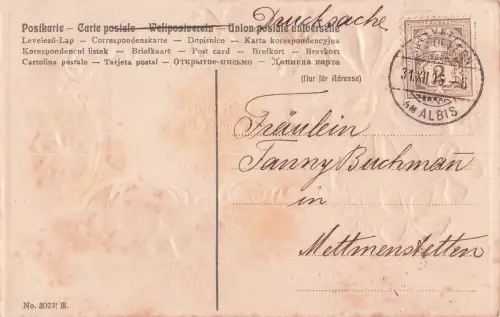 Drucksache
Postkarte — Carte postale — Weltpostverein — Union postale universelle
Levelező-Lap — Correspondenskarte — Dopisnice — Karta korespondencyjna
Korespondenční lístek — Briefkaart — Post card — Brefkort — Brevkort
Cartolina postale — Tarjeta postal — Открытое письмо — Дописна карта
(Nur für Adresse)
31.XII.
AM ALBIS
Fräulein
Fanny Buchman
in
Mettmenstetten
No. 3022 III.